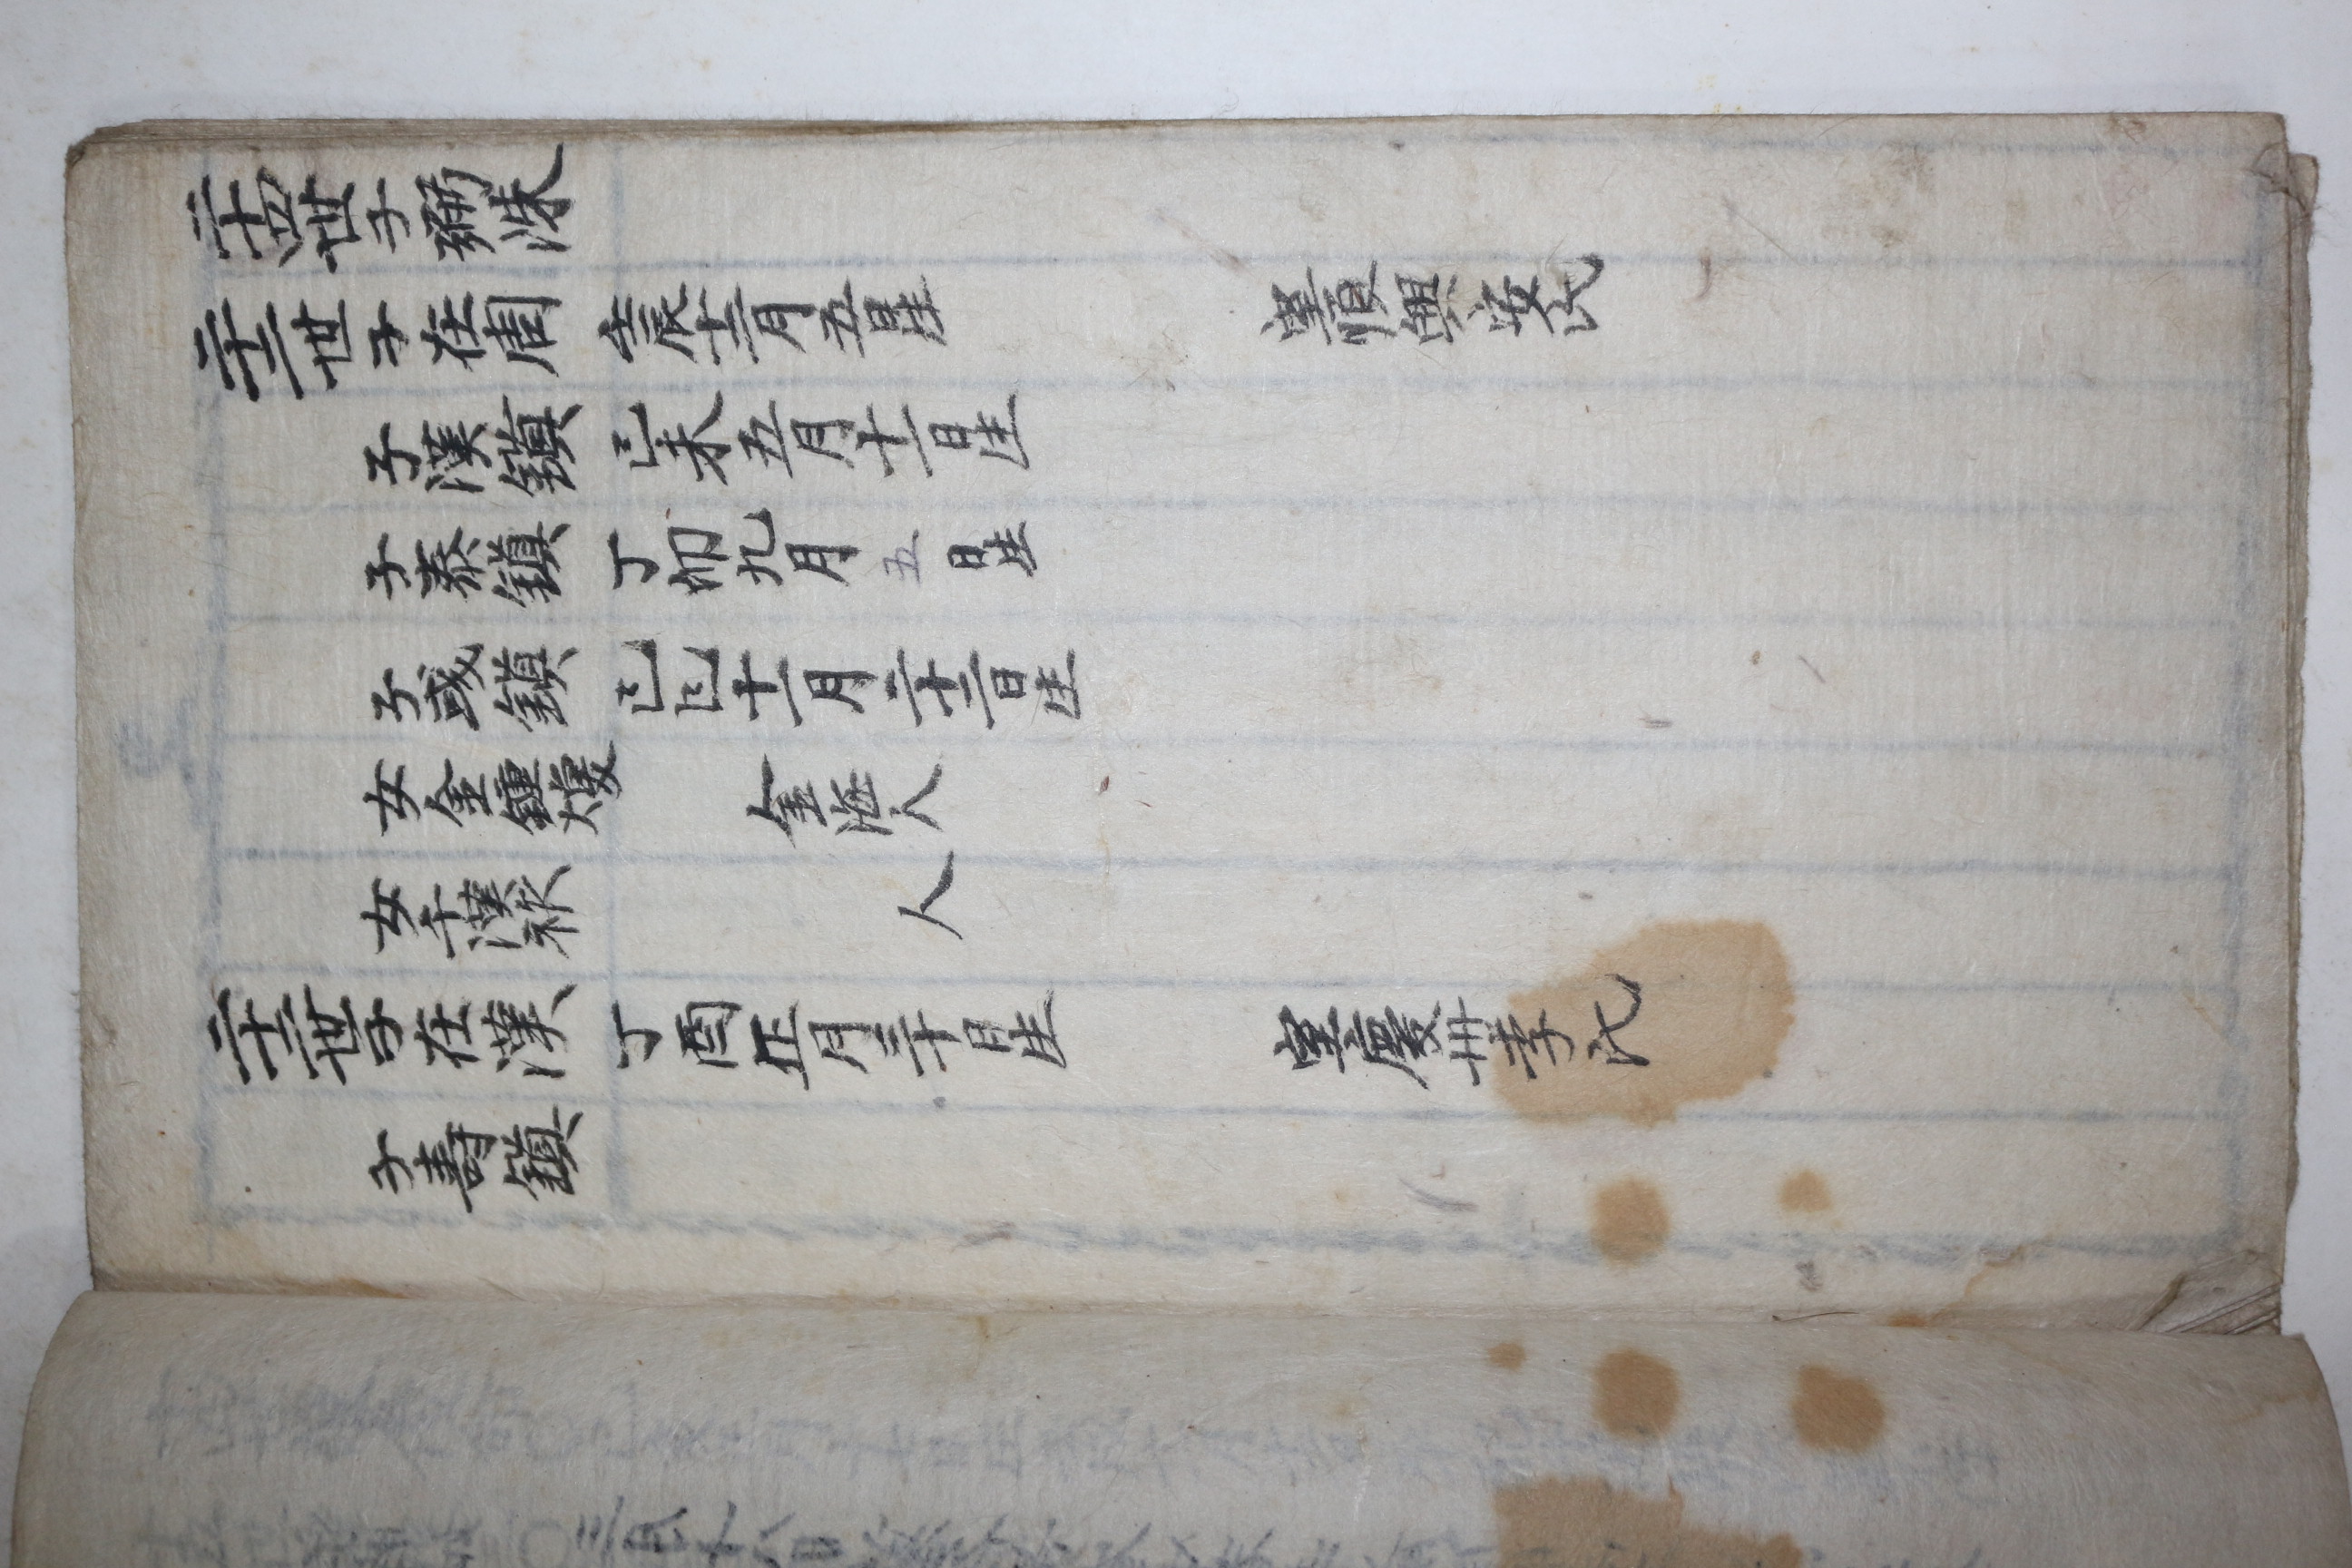 二十四世子弼洙
二十二世子在周 壬辰十二月五日生 室順興安氏
子漢鎭 己未五月十一日生
子泰鎭 丁卯九月五日生
子彧鎭 己巳十一月二十二日生
女金鍾煥 金海人
女千漢 人
二十二世子在漢 丁酉正月三十日生 室慶州李氏
子壽鎭